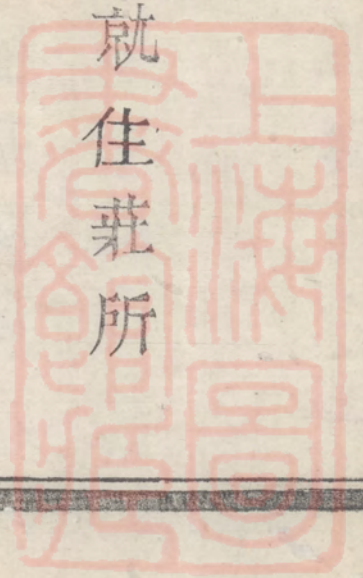 就住莊所
上海圖
書館藏